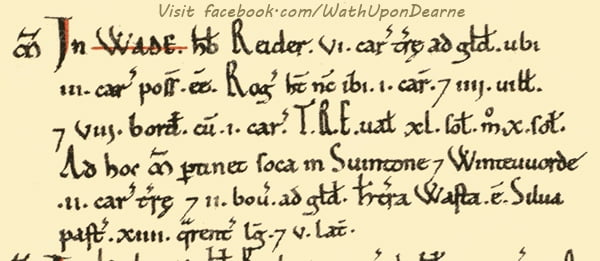 Visit facebook.com/WathUponDearne
M̃ In WADE. hb̄ Reider. vi. car̛ tr̄ę ad gld̄. ubi
iii. car̛ poss̄. ēē. Rog̛ ht̄ nc̄ ibi. i. car̄. ⁊ iiii. uill̄.
⁊ viii. bord̄. cū. i. car̛. T.R.E. ual̄ xl. sol̄. m̊. x. sol̄.
Ad hoc m̃ ptinet soca in Suintone ⁊ Winteuuorde
.ii. car̛ tr̄ę ⁊ ii. boư. ad gld̄. h̄ t̄ra Wasta. ē. Silua
past̛. xiiii. qrent̛ lḡ. ⁊ v. lat̄.